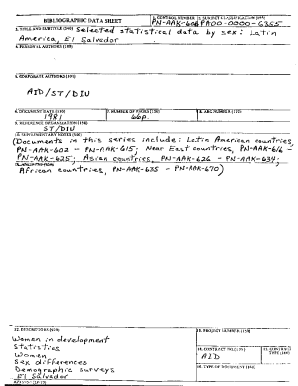 BIBLIOGRAPHIC DATA SHEET
1. CONTROL NUMBER
2. SUBJECT CLASSIFICATION (695)
PN-AAK-606
PA00-0000-G365
3. TITLE AND SUBTITLE (240)
Selected statistical data by sex: Latin
America, El Salvador
4. PERSONAL AUTHORS (100)
5. CORPORATE AUTHORS (101)
AID/ST/DIU
6. DOCUMENT DATE (110)
1981
7. NUMBER OF PAGES (120)
66p.
8. ARC NUMBER (170)
9. REFERENCE ORGANIZATION (130)
ST/DIU
10. SUPPLEMENTARY NOTES (500)
(Documents in this series include: Latin American countries,
PN-AAK-602 - PN-AAK-615; Near East countries, PN-AAK-616
- PN-AAK-625; Asian countries, PN-AAK-626 - PN-AAK-634;
African countries, PN-AAK-635 - PN-AAK-670)
12. DESCRIPTORS (920)
Women in development
Statistics
Women
Sex differences
Demographic surveys
El Salvador
13. PROJECT NUMBER (150)
14. CONTRACT NO.
AID
15. CONTRACT
TYPE (140)
16. TYPE OF DOCUMENT (160)